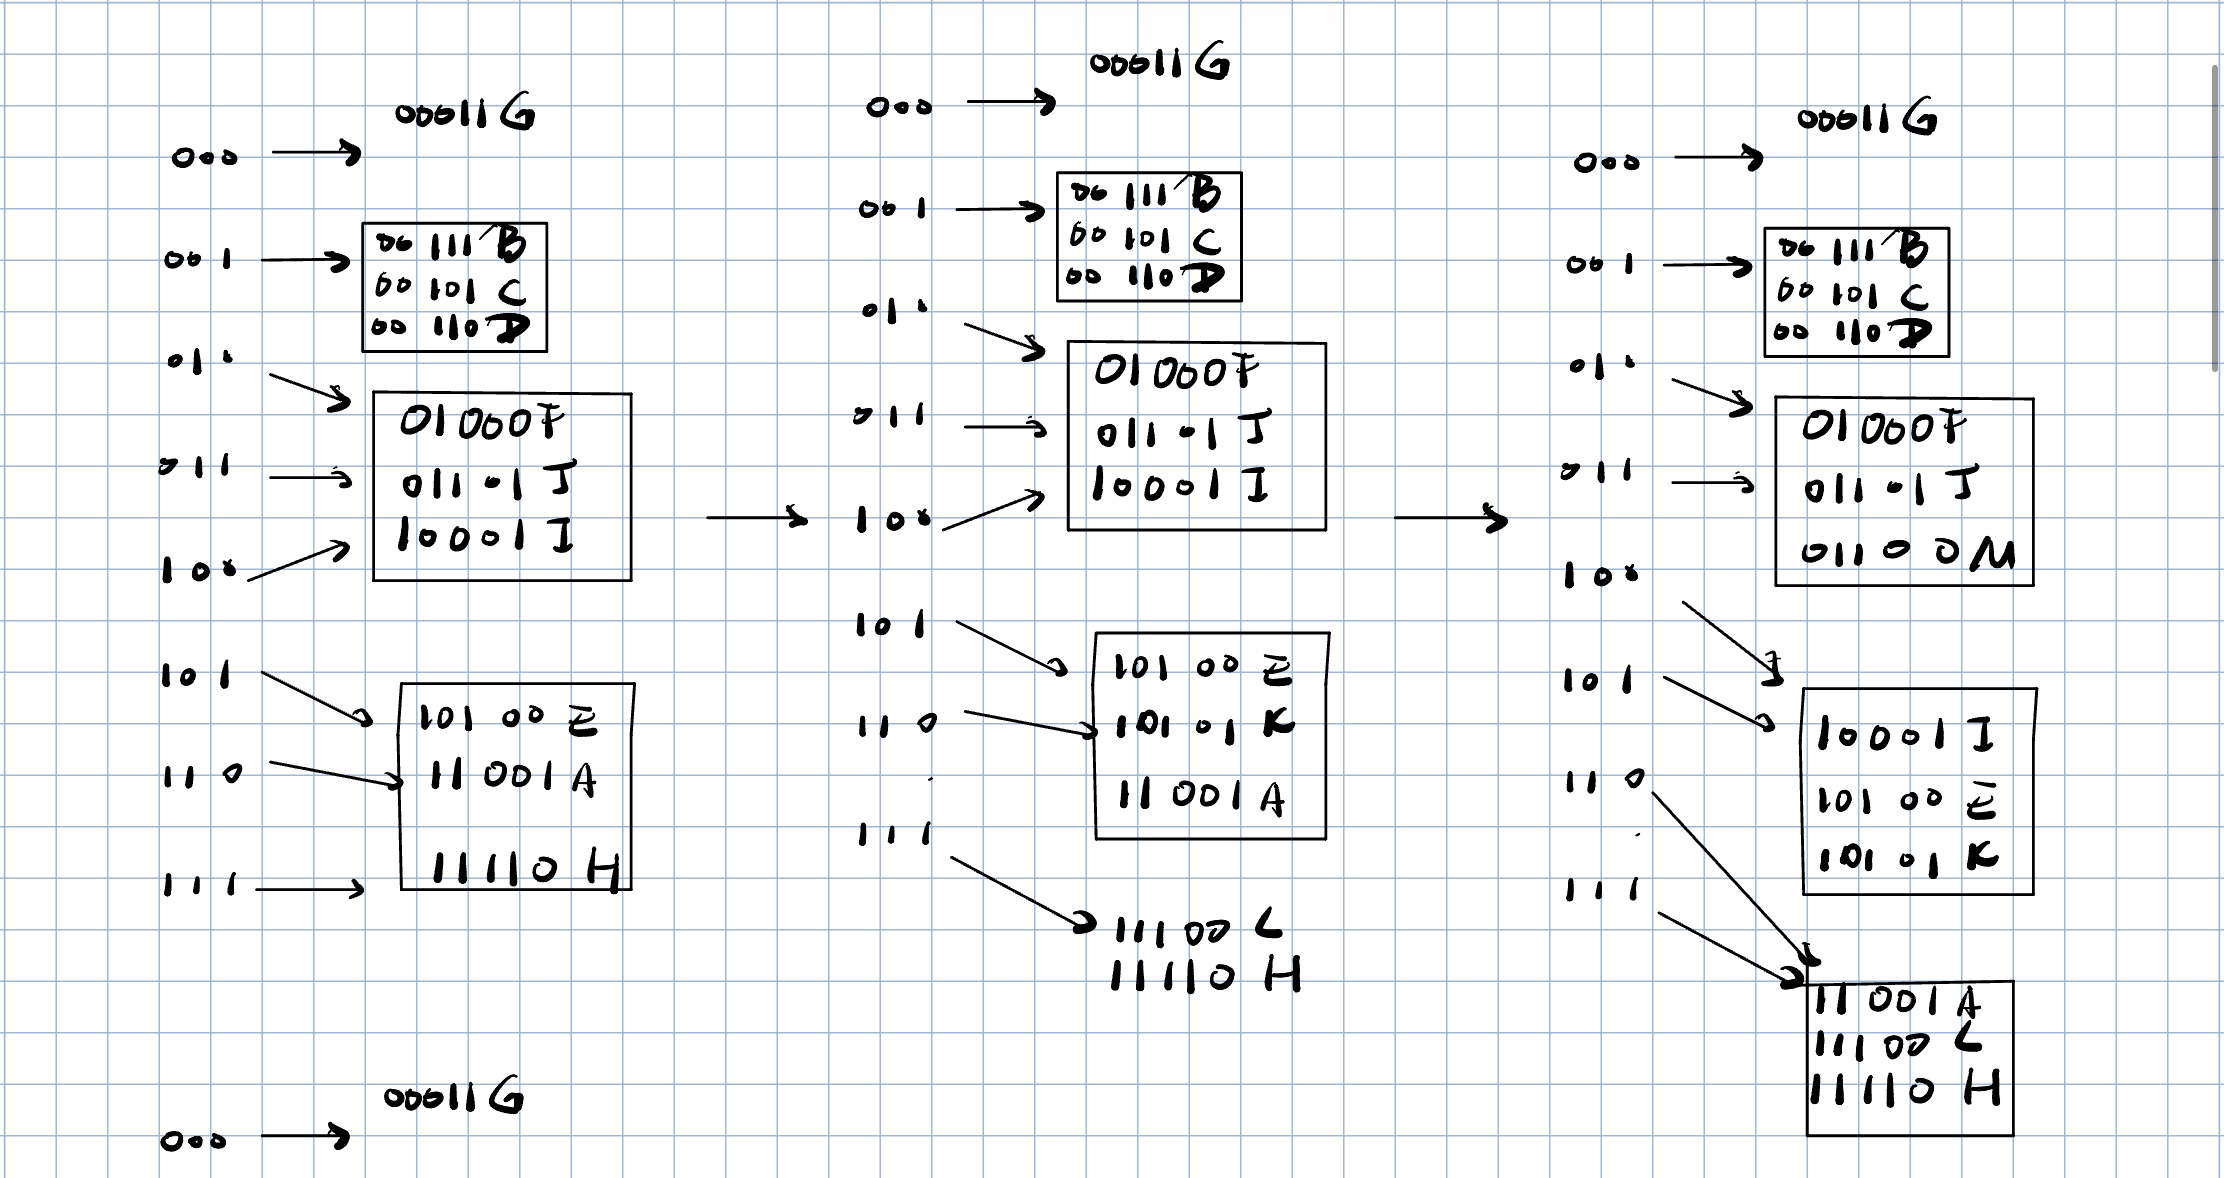 000 → 00011 G
001 → 00 111 B
00 101 C
00 110 D
010
011
100
01000 F
01101 J
10001 I
101
110
111
101 00 E
11 001 A
11110 H
000 → 00011 G
→
000 → 00011 G
001 → 00 111 B
00 101 C
00 110 D
010
011
100
01000 F
01101 J
10001 I
101
110
111
101 00 E
101 01 K
11 001 A
11100 L
11110 H
→
000 → 00011 G
001 → 00 111 B
00 101 C
00 110 D
010
011
01000 F
01101 J
01100 M
100
101
10001 I
101 00 E
101 01 K
110
111
11 001 A
11100 L
11110 H